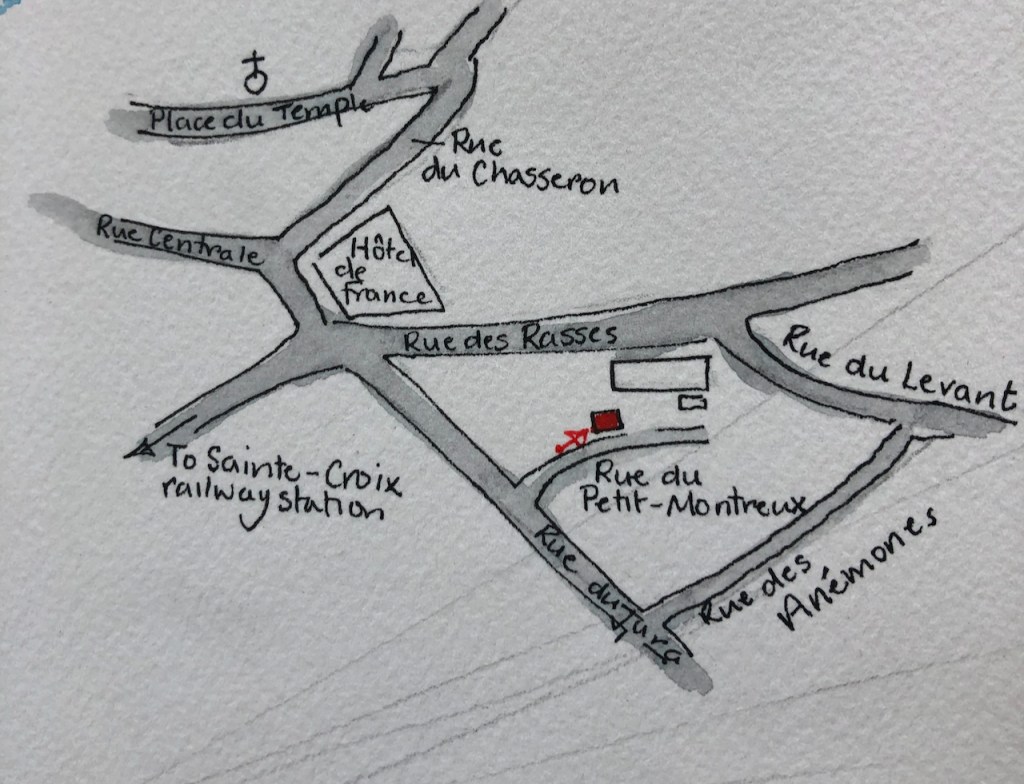 Place du Temple
Rue
du Chasseron
Rue Centrale
Hôtel
de
france
Rue des Rasses
Rue du Levant
To Sainte-Croix
railway station
Rue du
Petit-Montreux
Rue du Jura
Rue des
Anémones